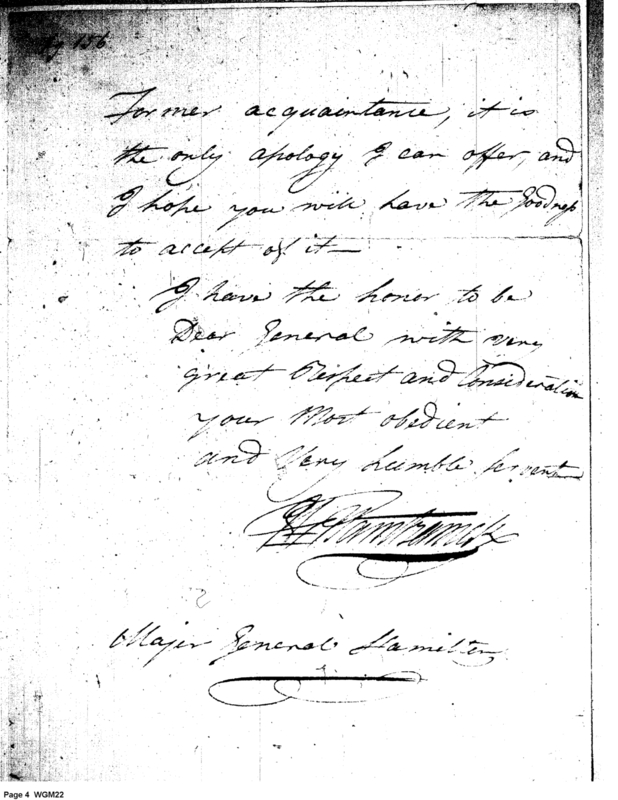 156
Former acquaintance, it is
the only apology I can offer, and
I hope you will have the Goodness
to accept of it —
I have the honor to be
Dear General with very
great Respect and Consideration
your Most obedient
and Very humble Servant
J F Hamtramck
Major General Hamilton
Page 4 WGM22